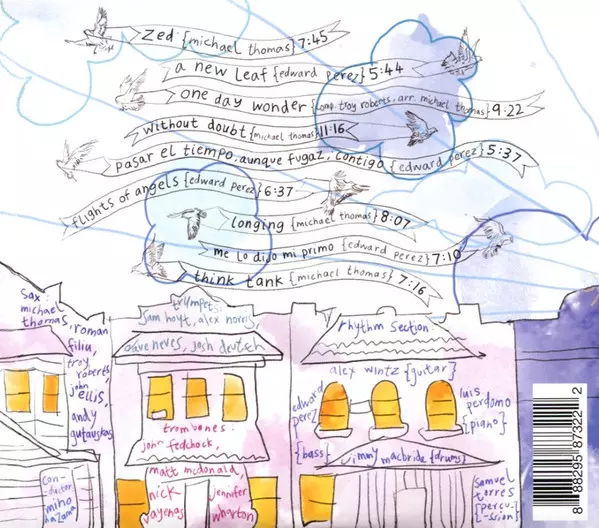 zed {michael thomas} 7:45
a new leaf {edward perez} 5:44
one day wonder {comp. troy roberts, arr. michael thomas} 9:22
without doubt {michael thomas} 11:16
pasar el tiempo, aunque fugaz, contigo {edward perez} 5:37
flights of angels {edward perez} 6:37
longing {michael thomas} 8:07
me lo dijo mi primo {edward perez} 7:10
think tank {michael thomas} 7:16
sax:
michael
thomas,
roman
filiu,
troy
roberts,
john
ellis,
andy
gutauskas
con-
ductor:
miho
hazama
trumpets:
sam hoyt, alex norris,
dave neves, josh deutsch
trombones:
john fedchock,
matt mcdonald,
nick
vayenas,
jennifer
wharton
rhythm section
alex wintz {guitar}
edward
perez
{bass}
luis
perdomo
{piano}
jimmy macbride {drums}
samuel
torres
{percu-
ssion}
8 88295 87322 2